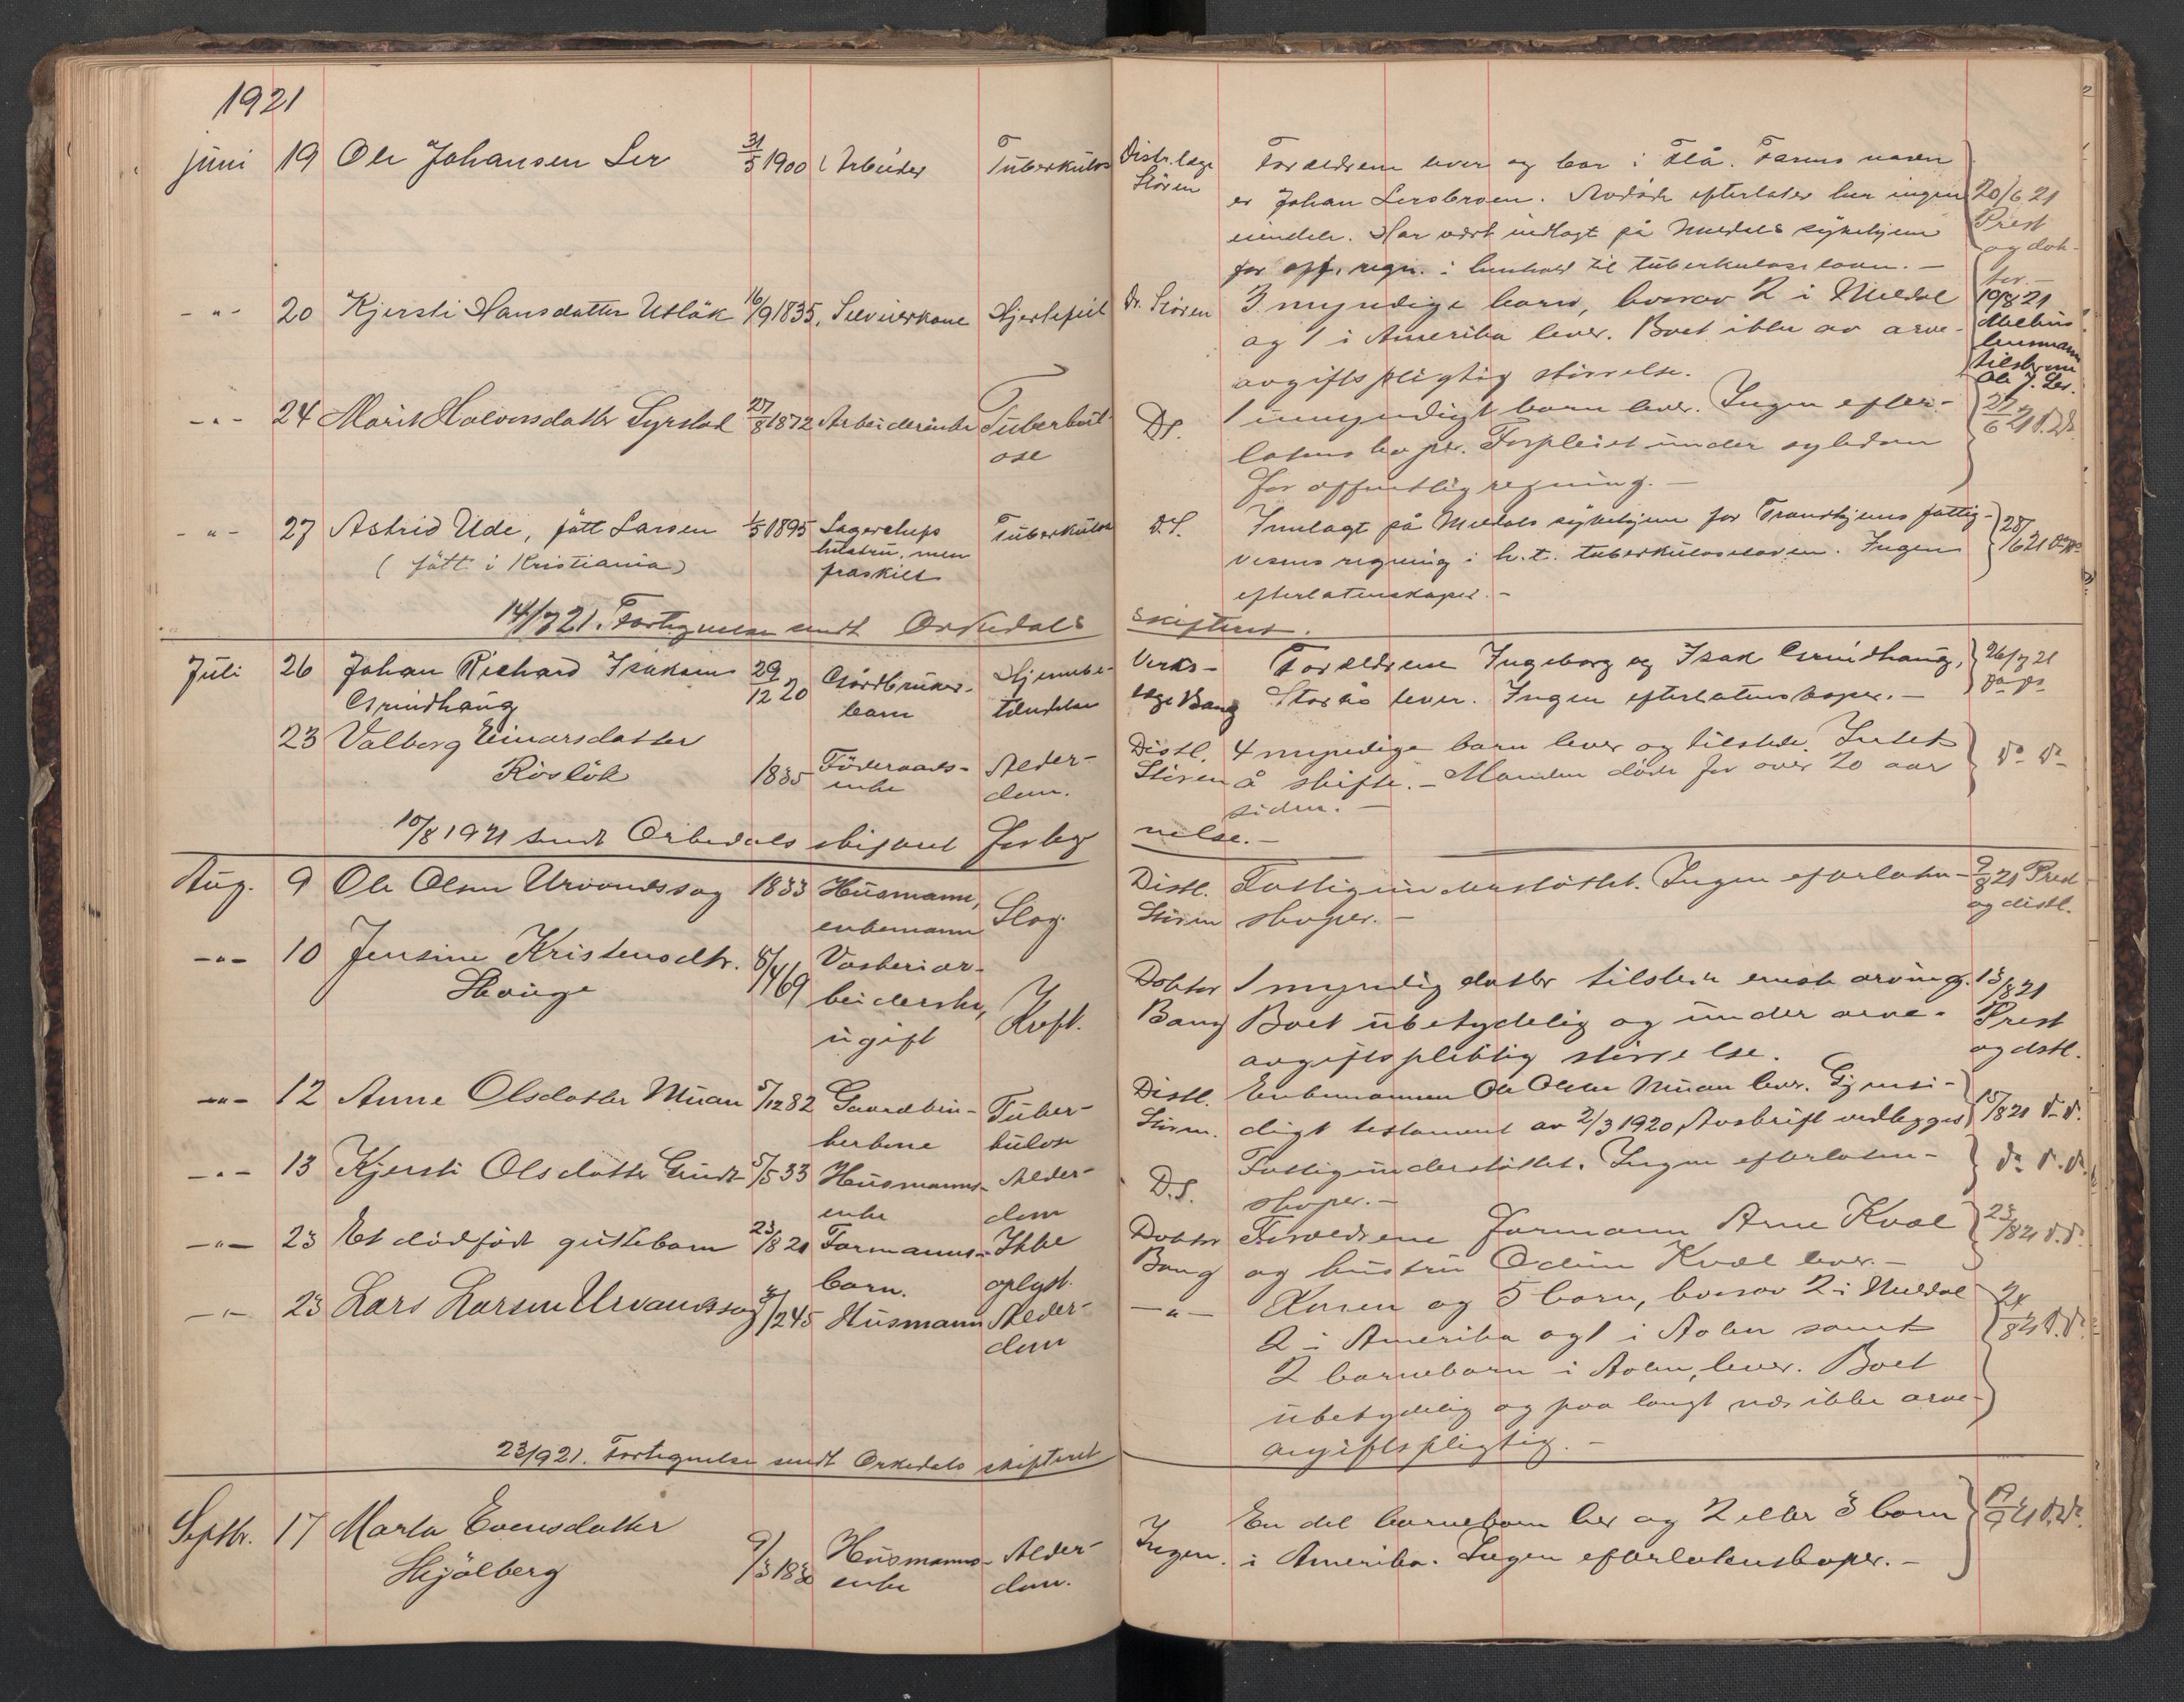 1921
juni 19 Ole Johansen Ler 31/5 1900 Arbeider Tuberkulos Distr.læge Støren
Forældrene lever og bor i Flå. Farens navn
er Johan Lersbroen. Avdøde efterlater her ingen
eiendele. Har vært indlagt på Meldals sykehjem
for off. regn. i henhold til tuberkuloseloven. -
20/6 21 Prest og dok-
tor.-
-"- 20 Kjersti Hansdatter Utløk 16/9 1835, Hjertefeil Dr. Støren
3 myndige barn, hvorav 2 i Meldal
og 1 i Amerika lever. Boet ikke av arve-
avgiftspligtig størrelse.
10/8 21
lensmann
Ole J. Ler.
-"- 24 Marit Halvorsdatter Syrstad 27/8 1872 Arbeiderenke Tuberkul-
ose
D.S.
1 umyndigt barn lever. Ingen efter-
latenskaper. Forpleiet under sykdom
for offentlig regning. -
27/6 21 d.do
-"- 27 Astrid Ude, født Larsen 1/5 1895 Lagerchefs
hustru, men
fraskilt
Tuberkulose
(født i Kristiania)
D.S.
Innlagt på Meldals sykehjem for Trondhjems fattig-
vesens regning i h.t. tuberkuloseloven. Ingen
efterlatenskaper. -
28/6 21 do do
14/7 21. Fortegnelse sendt Orkedals skifteret.
Juli 26 Johan Richard Isaksen
Grindhaug
29/12 20 Gårdbruker-
barn
Hjernebe-
tendelse
Verks-
læge Bang
Forældrene Ingeborg og Isak Grindhaug,
Storås lever. Ingen efterlatenskaper. -
26/7 21
do do
23 Valborg Einarsdatter
Risløk
1835 Føderaads-
enke
Alder-
dom.
Distl.
Støren
4 myndige barn lever og tilstede. Intet
å skifte. - Manden døde for over 20 aar
siden. -
do do
10/8 1921 sendt Orkedals skifteret forteg-
nelse. -
Aug. 9 Ole Olsen Urvandssag 1833 Husmann,
enkemann
Slag
Distl.
Støren
Fattigunderstøttet. Ingen efterlaten-
skaper. -
9/8 21 Prest
og distl.
-"- 10 Jensine Kristensdtr.
Skauge
8/4 69 Vaskeriar-
beiderske,
ugift
Kreft.
Doktor
Bang
1 myndig datter tilstede eneste arving.
Boet ubetydelig og under arve-
avgiftspliktig størrelse.
13/8 21
Prest
og dstl.
-"- 12 Anne Olsdatter Muan 5/12 82 Gaardbru-
kerkone
Tuber-
kulose
Distl.
Støren.
Enkemannen Ole Olsen Muan lever. Gjensi-
digt testament av 2/3 1920, Avskrift vedlegges
15/8 21 d. d.
-"- 13 Kjersti Olsdatter Grindt 5/5 33 Husmanns-
enke
Alder-
dom
D.S.
Fattigunderstøttet. Ingen efterlaten-
skaper. -
do d. do
-"- 23 Et dødfødt guttebarn 23/8 21 Formanns-
barn.
Ikke
oplyst.
Doktor
Bang
Forældrene formann Arne Kval
og hustru Odine Kval lever. -
23/8 21 d. d.
-"- 23 Lars Larsen Urvandssag 3/12 45 Husmann Alder-
dom
-"-
Konen og 5 barn, hvorav 2 i Meldal
2 i Amerika og 1 i Aalen samt
2 barnebarn i Aalen, lever. Boet
ubetydelig og paa langt nær ikke arve-
avgiftspligtig. -
24/8 21 d. d.
23/9 21. Fortegnelse sendt Orkedals skifteret
Septbr. 17 Marta Evensdatter
Skjølberg
9/3 1830 Husmanns-
enke
Alder-
dom.
Ingen.
En del barnebarn her og 2 eller 3 barn
i Amerika. Ingen efterlatenskaper. -
19/9 21 d. do.